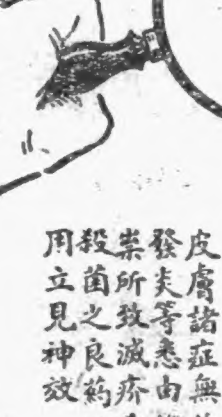 皮膚諸症無
發炎等悉由
祟所致滅疥
殺菌之良药
用立見神效